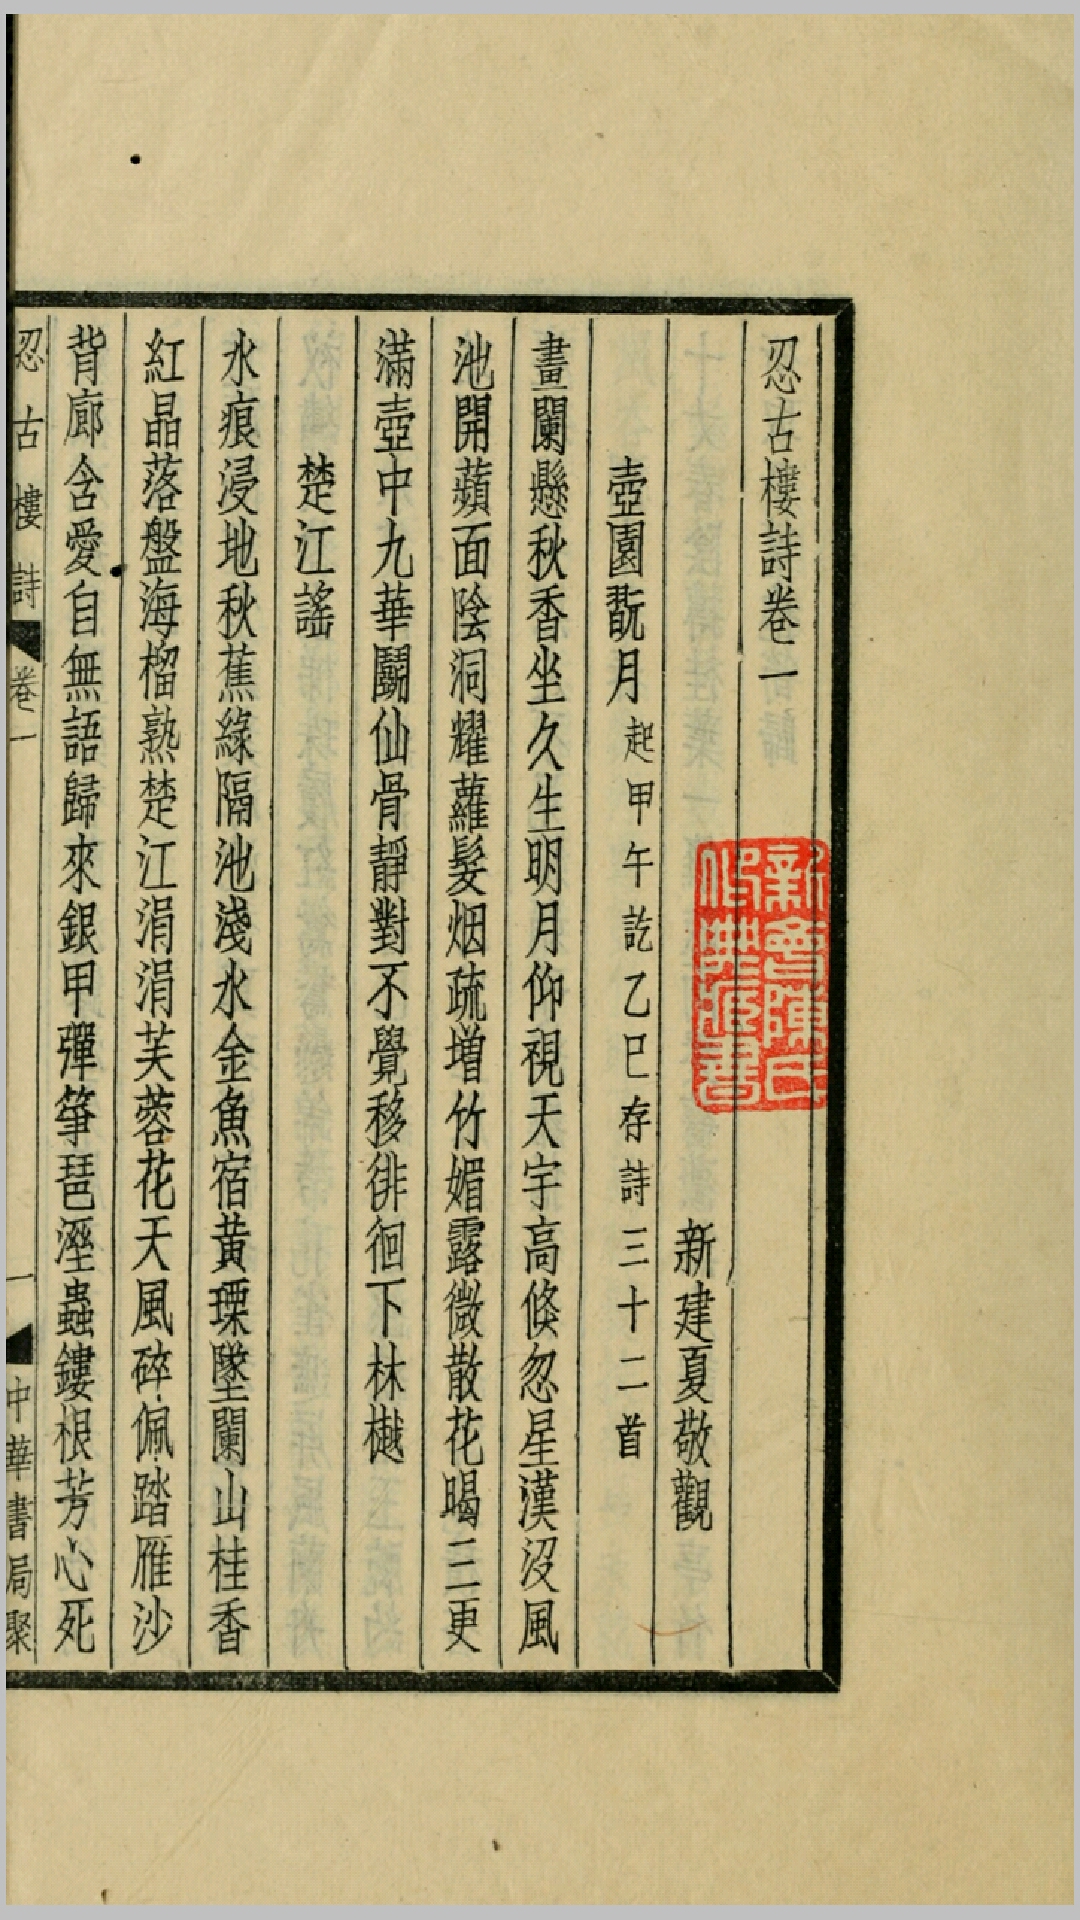 忍古樓詩卷一
新會陳氏
新建夏敬觀
壺園翫月起甲午訖乙巳存詩三十二首
畫闌懸秋香坐久生明月仰視天宇高倏忽星漢沒風
池開蘋面陰洞耀蘿髮烟疏增竹媚露微散花暍三更
滿壺中九華鬭仙骨靜對不覺移徘徊下林樾
楚江謠
水痕浸地秋蕉綠隔池淺水金魚宿黃瑮墜闌山桂香
紅晶落盤海榴熟楚江涓涓芙蓉花天風碎佩踏雁沙
背廊含愛自無語歸來銀甲彈箏琶溼蟲鏤根芳心死
忍古樓詩 卷一 一 中華書局聚